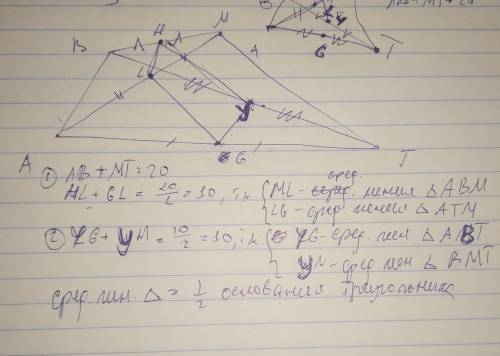 B
У
G
T
B
H
M
A
L
У
G
A
T
① AB + MT = 20
HL + GL = 20/2 = 10, т.к. { ML - сред. линия △ ABM
LG - сред. линия △ ATM
② УG + УH = 20/2 = 10, т.к. { УG - сред. лин. △ ABT
УH - сред. лин △ BMT
сред. лин. △ = 1/2 основания треугольника